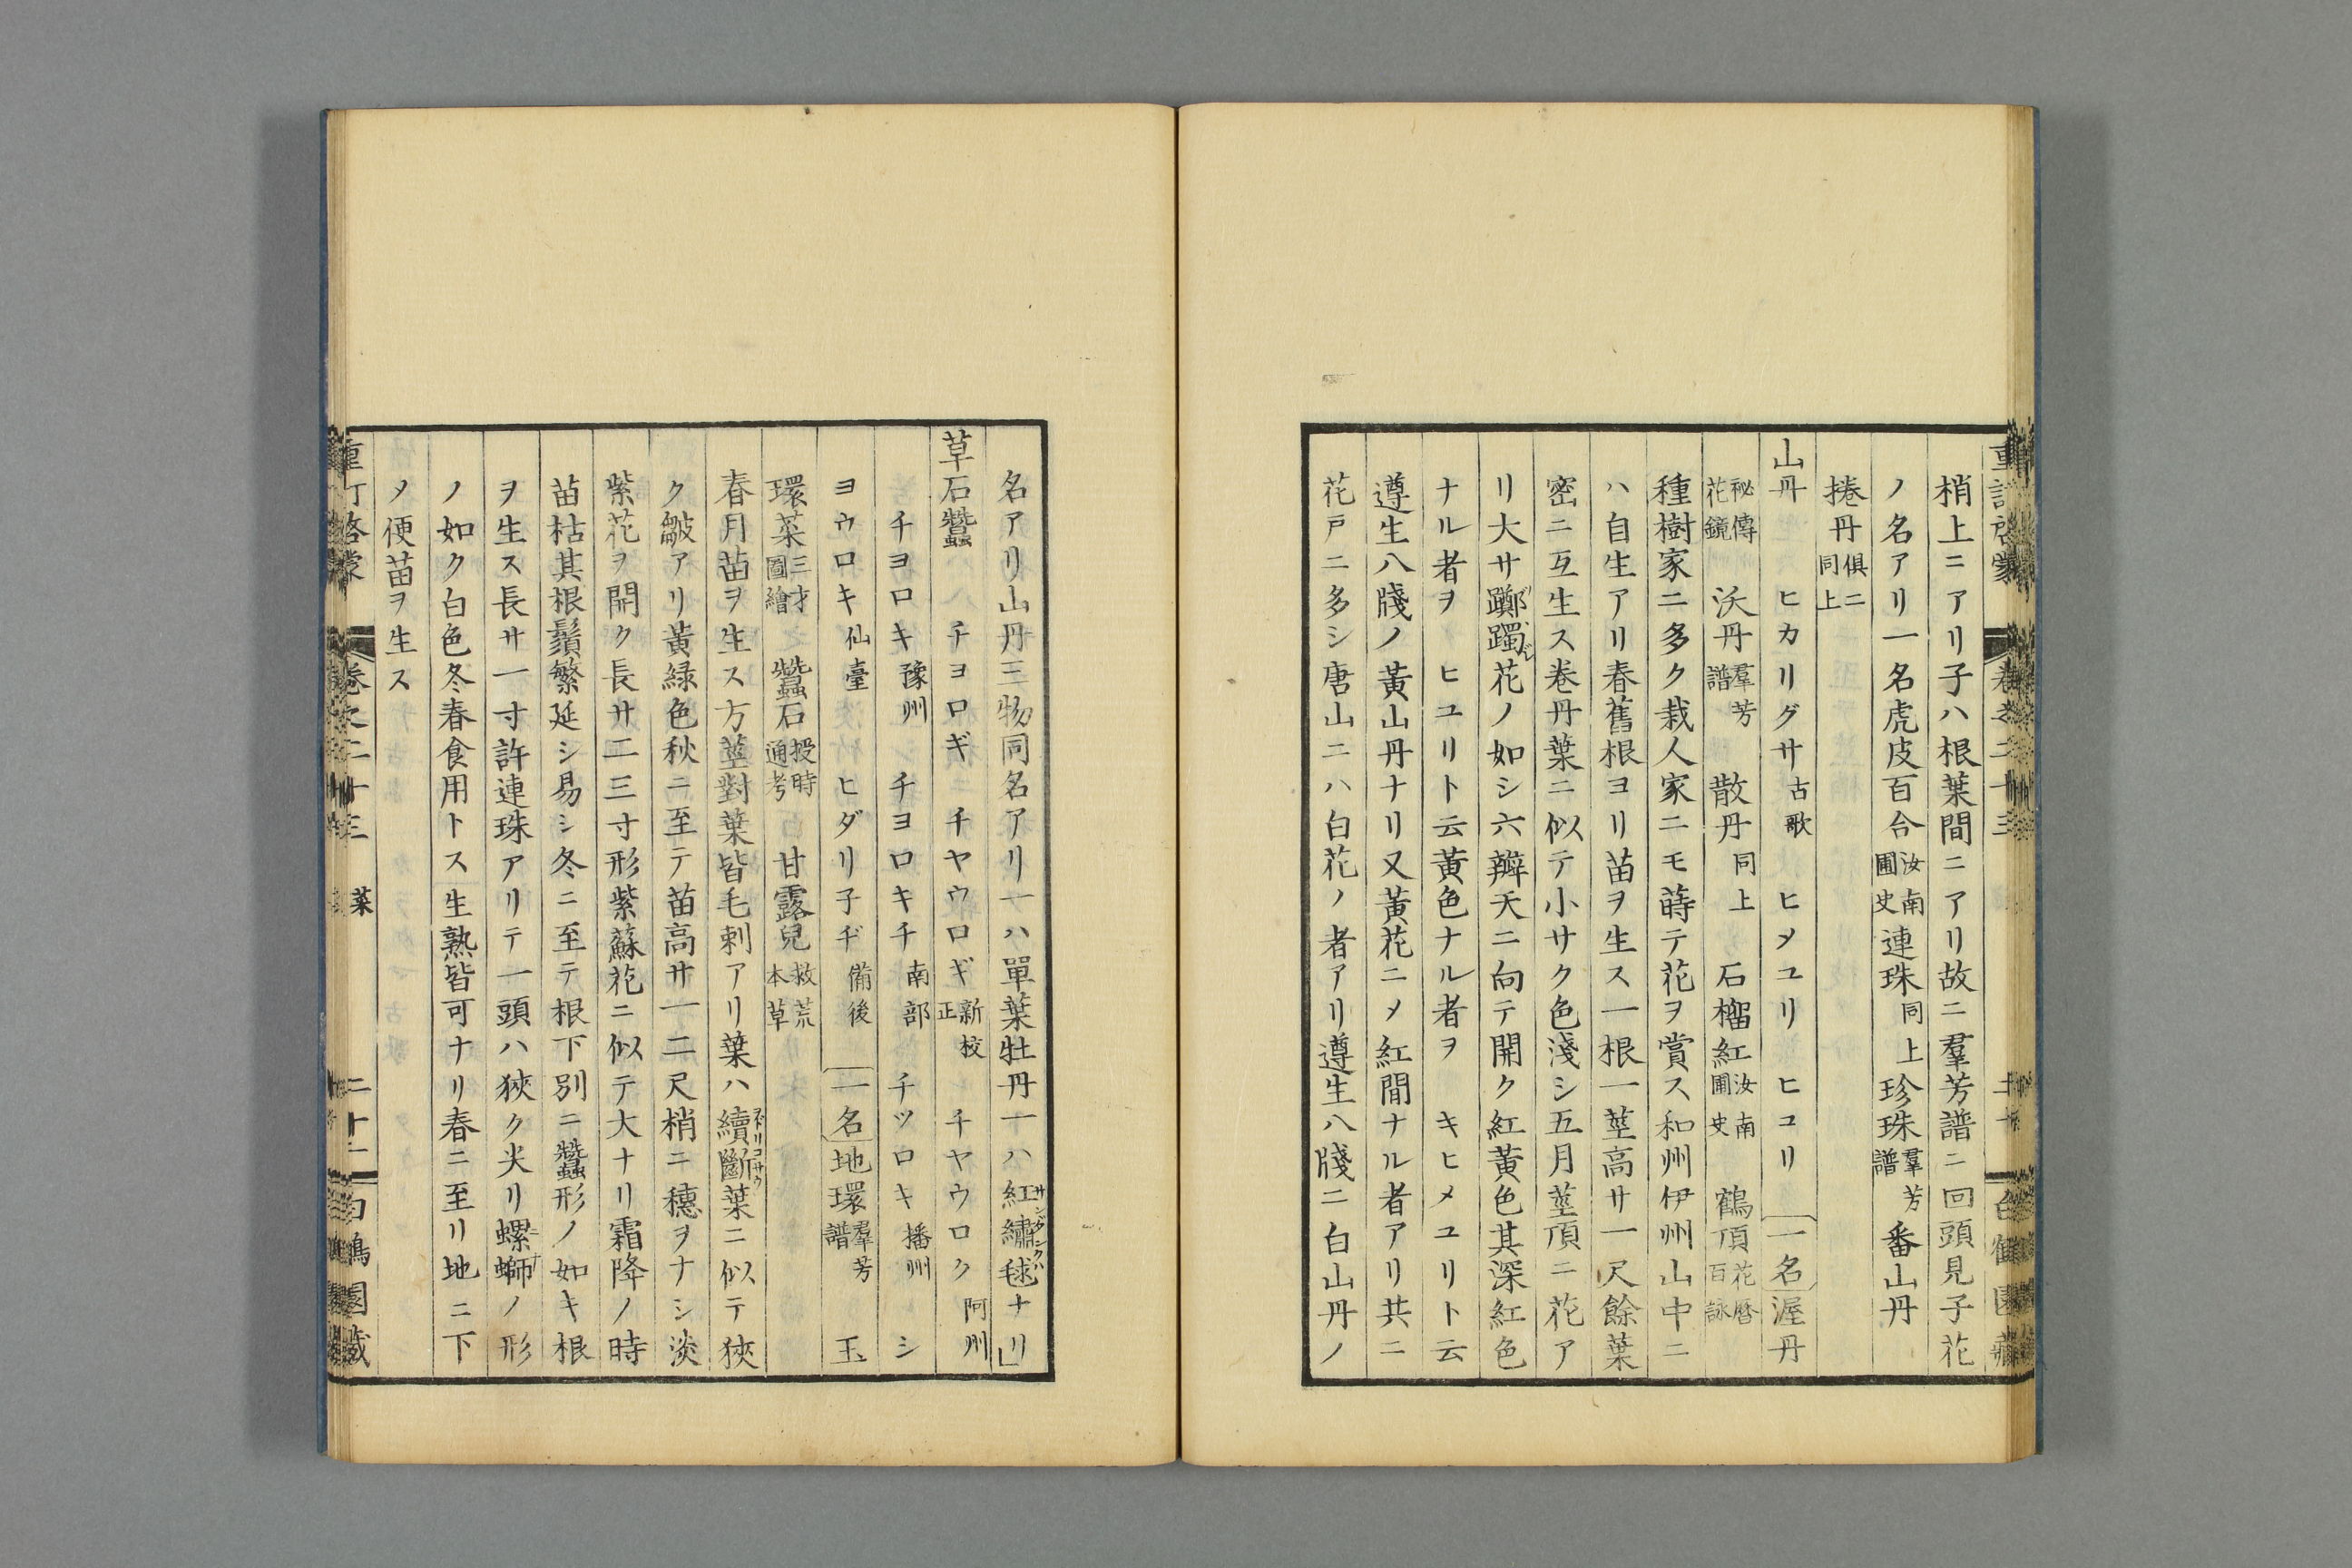 梢上ニアリ子ハ根葉間ニアリ故ニ羣芳譜ニ回頭見子花
ノ名アリ一名虎皮百合汝南圃史連珠同上珍珠羣芳譜番山丹
捲丹俱ニ同上
山丹 ヒカリグサ古歌 ヒメユリ ヒユリ 一名渥丹
秘傳花鏡 沃丹羣芳譜 散丹同上 石榴紅汝南圃史 鶴頂花暦百詠
種樹家ニ多ク栽人家ニモ蒔テ花ヲ賞ス和州伊州山中ニ
ハ自生アリ春舊根ヨリ苗ヲ生ス一根一莖高サ一尺餘葉
密ニ互生ス卷丹葉ニ似テ小サク色淺シ五月莖頂ニ花ア
リ大サ躑躅花ノ如シ六瓣天ニ向テ開ク紅黃色其深紅色
ナル者ヲ ヒユリト云黃色ナル者ヲ キヒメユリト云
遵生八牋ノ黃山丹ナリ又黃花ニメ紅間ナル者アリ共ニ
花戸ニ多シ唐山ニハ白花ノ者アリ遵生八牋ニ白山丹ノ
名アリ山丹三物同名アリ一ハ單葉牡丹一ハ紅繡毬サンダンクハナリ」
草石蠶 チヨロギ チヤウロギ新校正 チヤウロク阿州
チヨロキ豫州 チヨロキチ南部 チツロキ播州 シ
ヨウロキ仙臺 ヒダリ子ヂ備後 一名地環羣芳譜 玉
環菜三才圖繪 蠶石授時通考 甘露兒救荒本草
春月苗ヲ生ス方莖對葉皆毛刺アリ葉ハ續斷葉ニ似テ狹
ク皺アリ黃綠色秋ニ至テ苗高サ一二尺梢ニ穗ヲナシ淡
紫花ヲ開ク長サ二三寸形紫蘇花ニ似テ大ナリ霜降ノ時
苗枯其根鬚繁延シ易シ冬ニ至テ根下別ニ蠶形ノ如キ根
ヲ生ス長サ一寸許連珠アリテ一頭ハ狹ク尖リ螺螄ニナノ形
ノ如ク白色冬春食用トス生熟皆可ナリ春ニ至リ地ニ下
メ便苗ヲ生ス
卷之二十三 菜 二十二